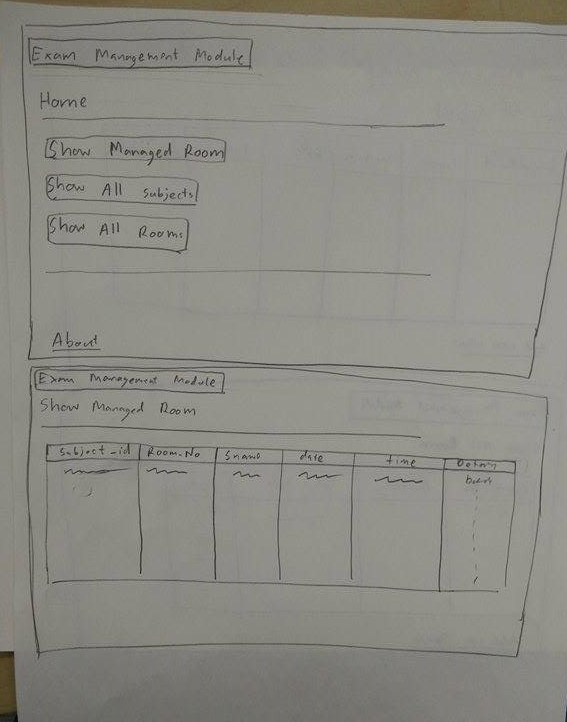 Exam Management Module
Home
Show Managed Room
Show All Subjects
Show All Rooms
About
Exam Management Module
Show Managed Room
Subject_id Room.No Sname date time